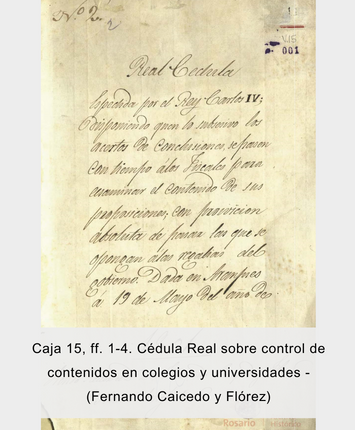 Nº 2
2
001
Real Cedula
Expedida por el Rey Carlos IV;
Disponiendo que en lo subsesivo los
acortos de conclusiones, se pasen
con tiempo a los Fiscales para
examinar el contenido de sus
proposiciones, con provicion
absoluta de pasar las que se
opongan a las regalias del
gobierno. Dada en Aranjues
à 19 de Mayo del año de
Caja 15, ff. 1-4. Cédula Real sobre control de
contenidos en colegios y universidades -
(Fernando Caicedo y Flórez)
Rosario
Histórico